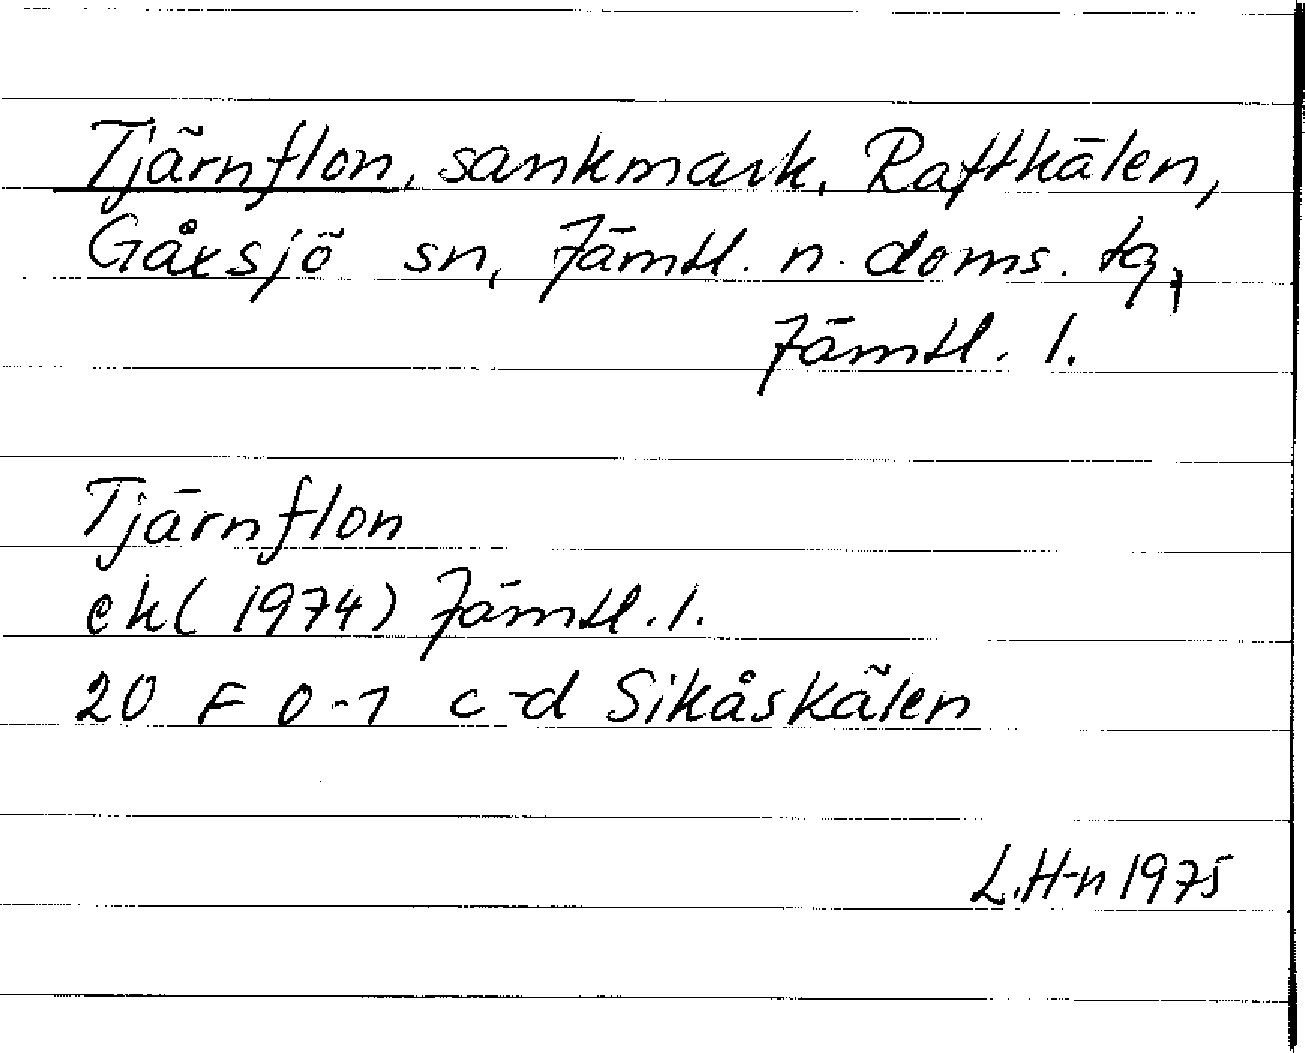 Tjärnflon, sankmark, Raftkälen,
Gåxsjö sn, Jämtl. n. doms. tg,
Jämtl. l.
Tjärnflon
ek (1974) Jämtl. l.
20 F 0-1 c-d Sikåskälen
L.H-n 1975